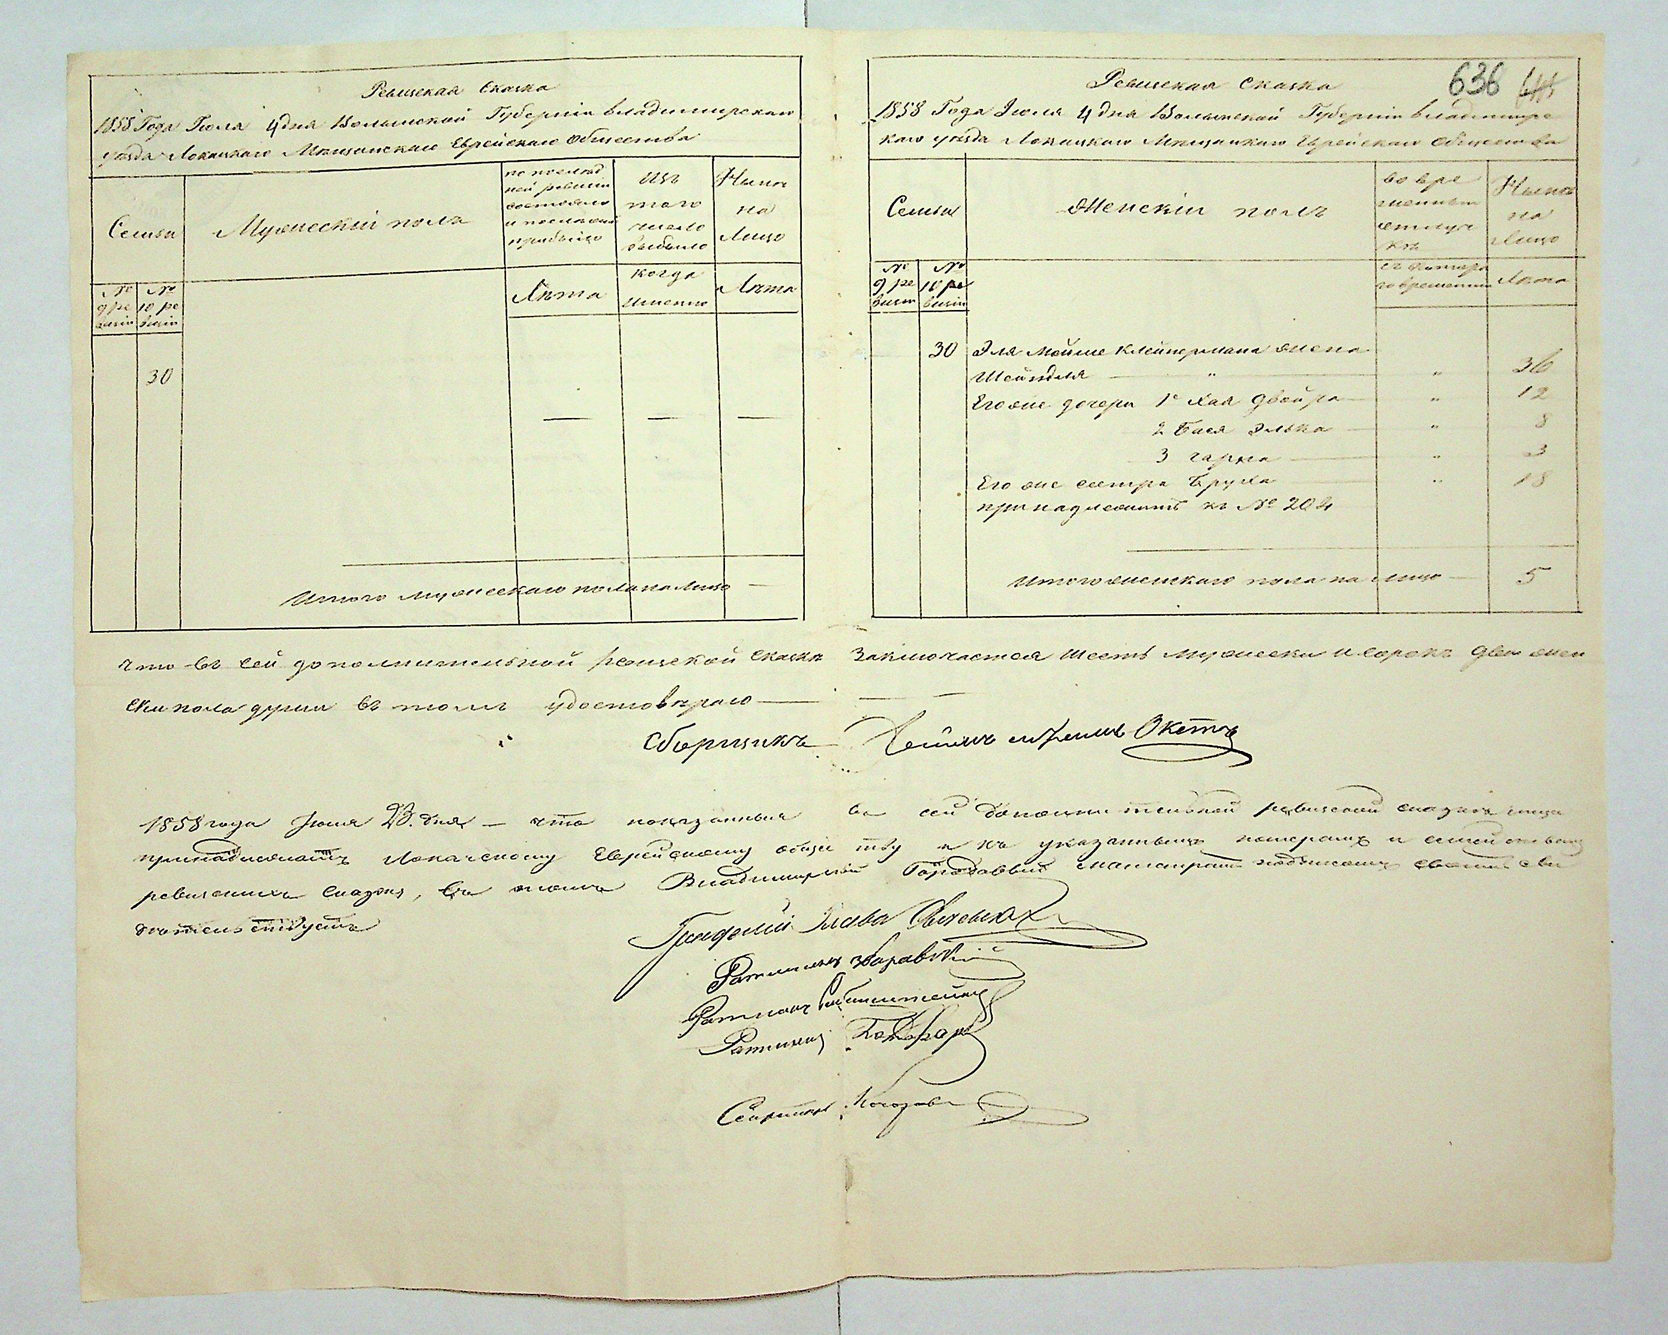 Ревизская Сказка
1858 Года Июля 4 дня Волынской Губерніи Владимирскаго
уезда Локацкаго Мещанскаго Еврейскаго Общества
Семьи
Мужескій полъ
по послед
ней ревизіи
состояло
и после оной
прибыло
Изъ
того
число
выбыло
Ныне
на
Лицо
№
9 ре
визіи
№
10 ре
визіи
Лѣта
когда
именно
Лѣта
30
Итого мужескаго пола на лицо
636
Ревизская Сказка
1858 Года Июля 4 дня Волынской Губерніи Владимирс
каго уезда Локацкаго Мещанскаго Еврейскаго Общества
Семьи
Женскій полъ
во вре
менной
отлуч
кѣ
Ныне
на
Лицо
№
9 ре
визіи
№
10 ре
визіи
съ котораго
времени
Лѣта
30 Эля Мойше Клейнермана жена
Шейндля " " 36
Его же дочери 1я Хая Двойра " 12
2 Бася Элька " 8
3 " 3
Его же сестра Бруха " 18
принадлежитъ къ № 204
Итого женскаго пола на лицо 5
что въ сей дополнительной ревизской сказке заключается шесть мужески и сорокъ две жен
ски пола души въ томъ удостоверяю
Сборщикъ
1858 года Июля 23 дня что показанныя въ сей дополнительной ревизской сказке лица
принадлежатъ Локачскому Еврейскому обществу и къ указаннымъ номерамъ и
ревизскихъ сказокъ, въ томъ Владимирскій Городовый магистратъ подписомъ своимъ сви
детельствуетъ
Ратманъ
Ратманъ
Ратманъ
Секретарь